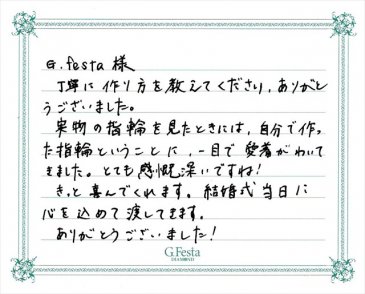 G.festa 様
丁寧に作り方を教えてください、ありがと
うございました。
実物の指輪を見たときには、自分で作っ
た指輪ということに、一目で愛着がわいて
きました。とても感慨深いですね!
きっと喜んでくれます。結婚式当日に
心を込めて渡してきます。
ありがとうございました!
G.Festa
DIAMOND